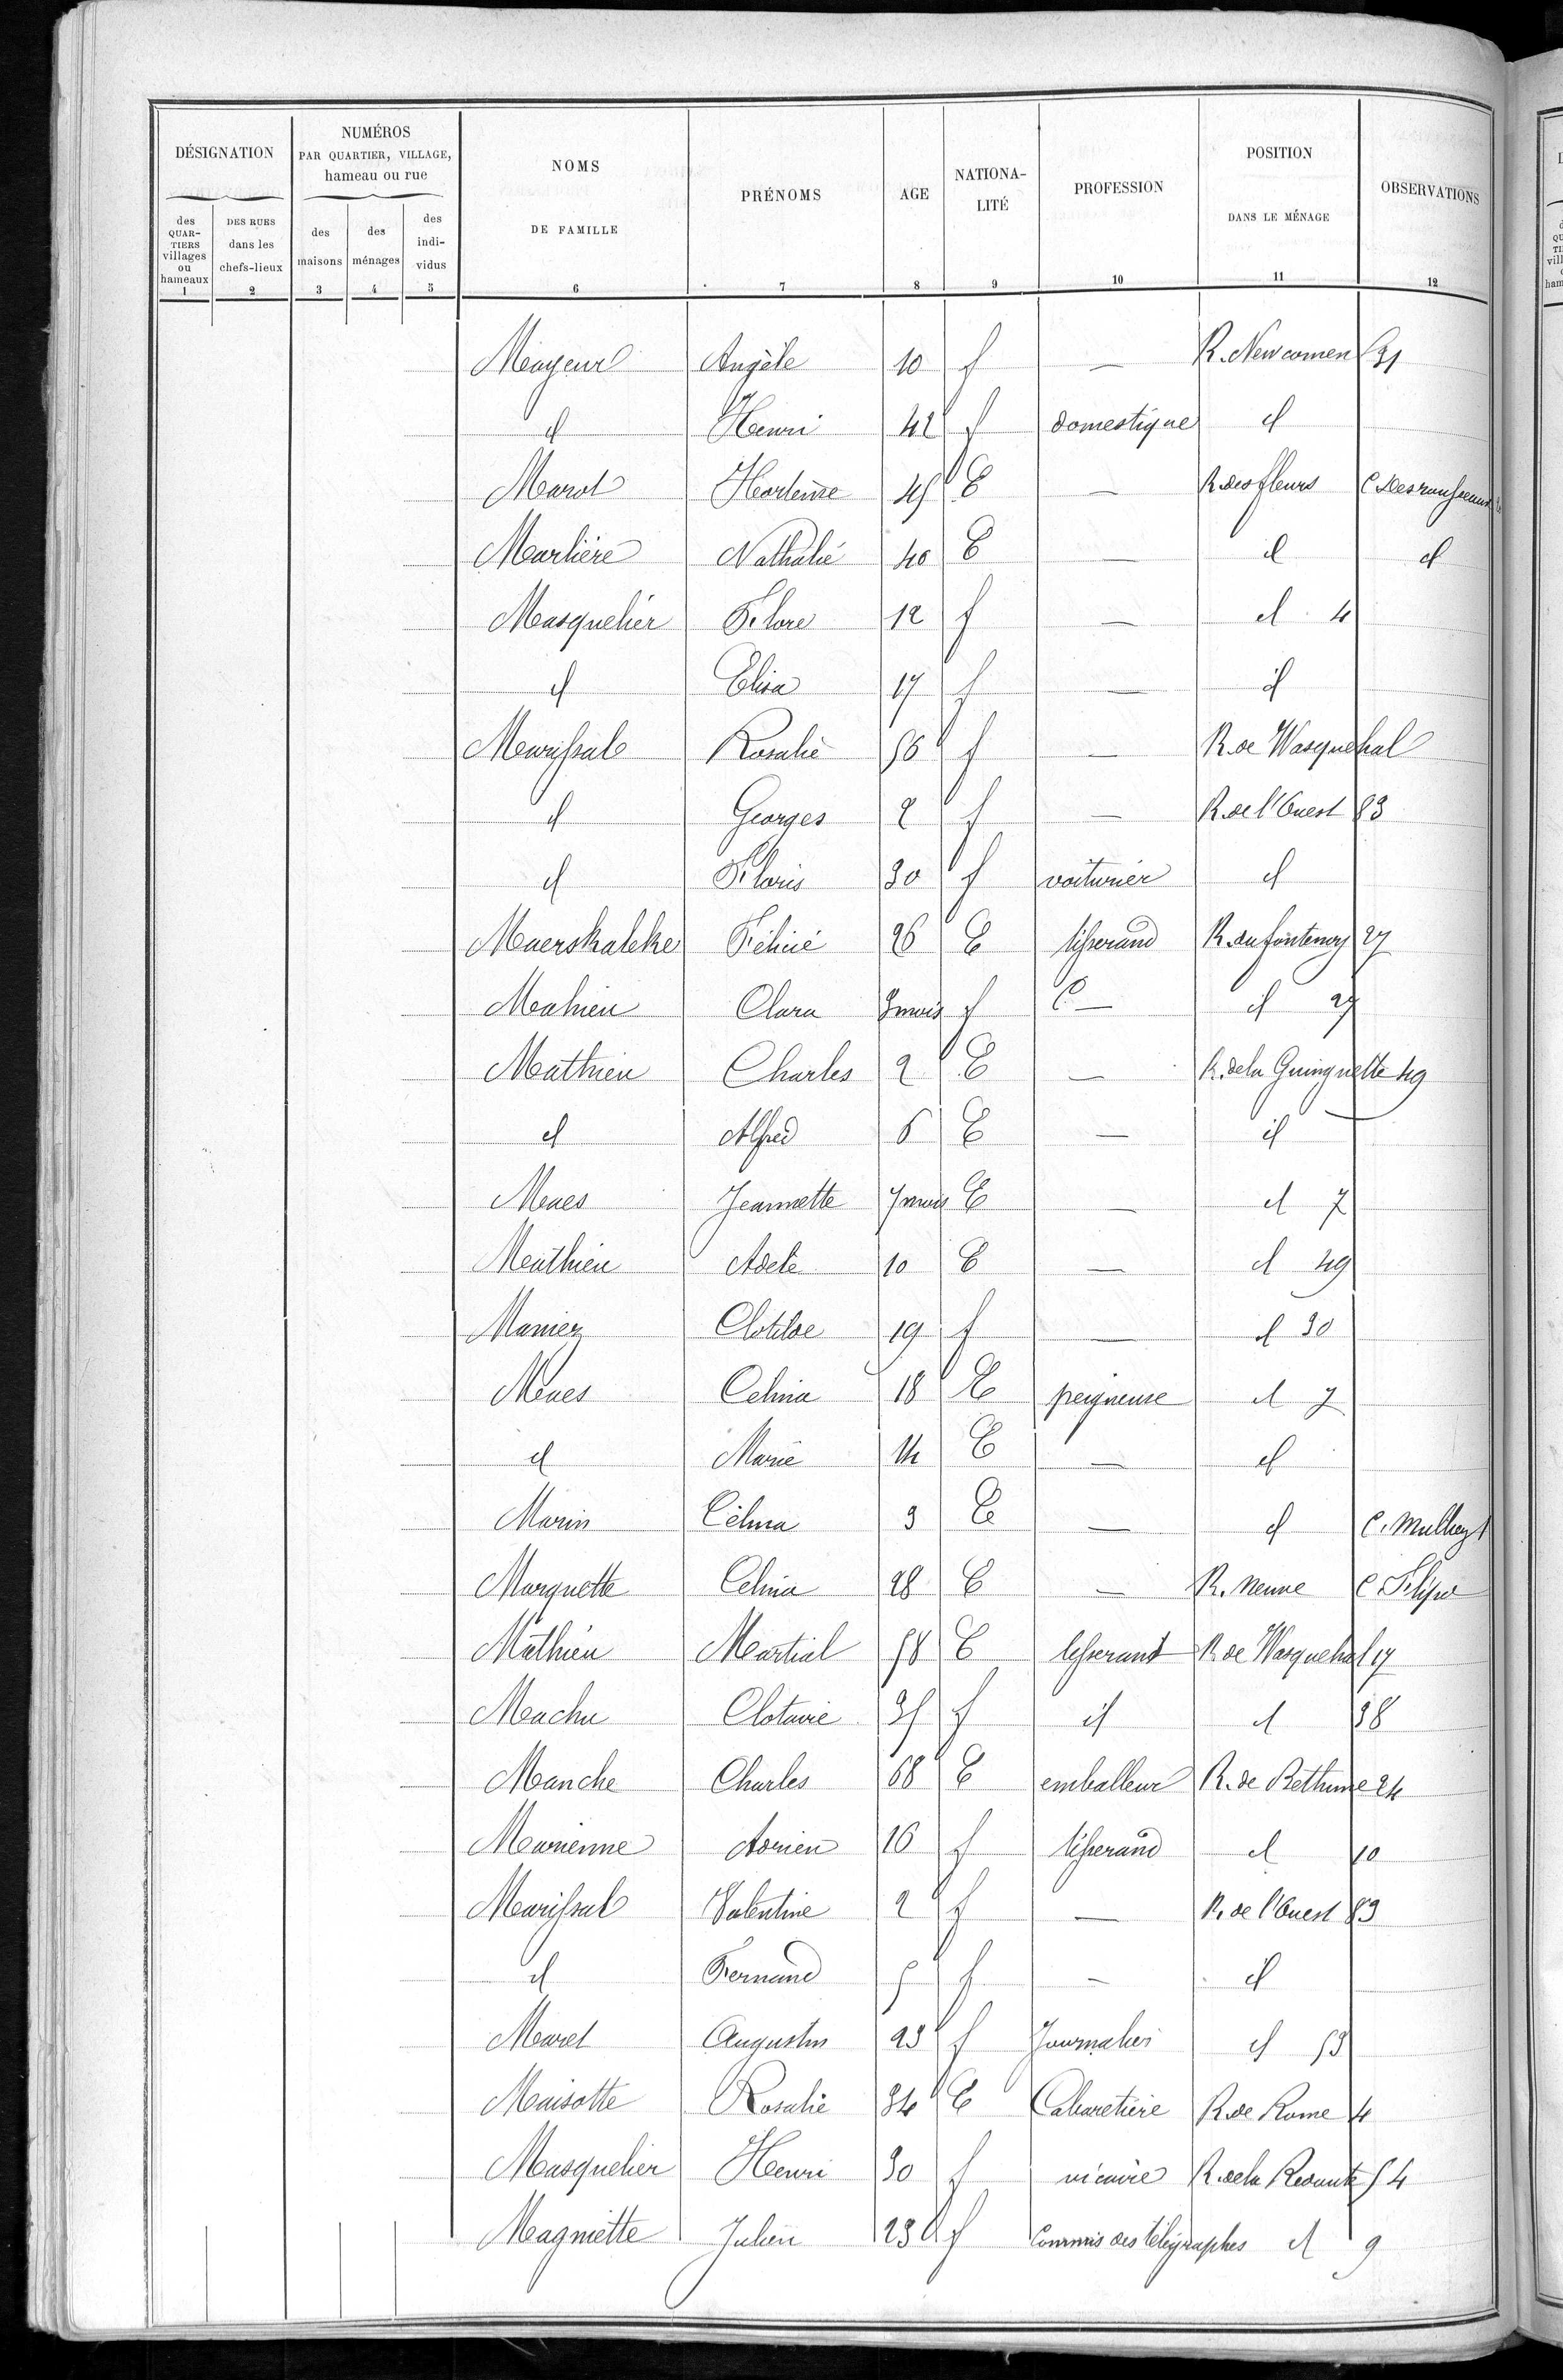 DÉSIGNATION
NUMÉROS
PAR QUARTIER, VILLAGE,
hameau ou rue
NOMS
DE FAMILLE
PRÉNOMS
AGE
NATIONA-
LITÉ
PROFESSION
POSITION
DANS LE MÉNAGE
OBSERVATIONS
des QUAR-TIERS villages ou hameaux
DES RUES dans les chefs-lieux
des maisons
des ménages
des indi-vidus
1 2 3 4 5 6 7 8 9 10 11 12
Mayeur Angèle 10 f — R. Newcomen 31
d Henri 42 f domestique d
Marot Hortense 45 E — R. des fleurs C Desrousseaux
Marlière Nathalie 40 E — d d
Masquelier Flore 12 f — d 4
d Elisa 17 f — d
Marissal Rosalie 56 f — R. de Wasquehal
d Georges 2 f — R. de l'Ouest 83
d Floris 30 f voiturier d
Maerskaleke Félicié 26 E tisserand R. du fontenoy 27
Mahieu Clara 3 mois f — d 27
Mathieu Charles 2 E — R. de la Guinguette 49
d Alfred 6 E — d
Maes Jeannette 7 mois E — d 7
Mathieu Adele 10 E — d 49
Maniez Clotilde 19 f — d 30
Maes Celina 18 E peigneuse d 7
d Marie 14 E — d
Marin Célina 3 E — d
Marquette Celina 28 E — R. Neuve C Flipo
Mathieu Martial 58 E tisserand R de Wasquehal 17
Machu Clotaire 35 f d d 38
Manche Charles 68 E emballeur R. de Bethune 24
Marienne Adrien 16 f tisserand d 10
Marissal Valentine 2 f — R. de l'Ouest 83
d Fernand 5 f — d
Marel Augustin 23 f Journalier d 53
Maisotte Rosalie 34 E Cabaretière R. de Rome 4
Masquelier Henri 30 f vicaire R. de la Redoute 54
Magniette Julien 23 f Commis des télégraphes d 9